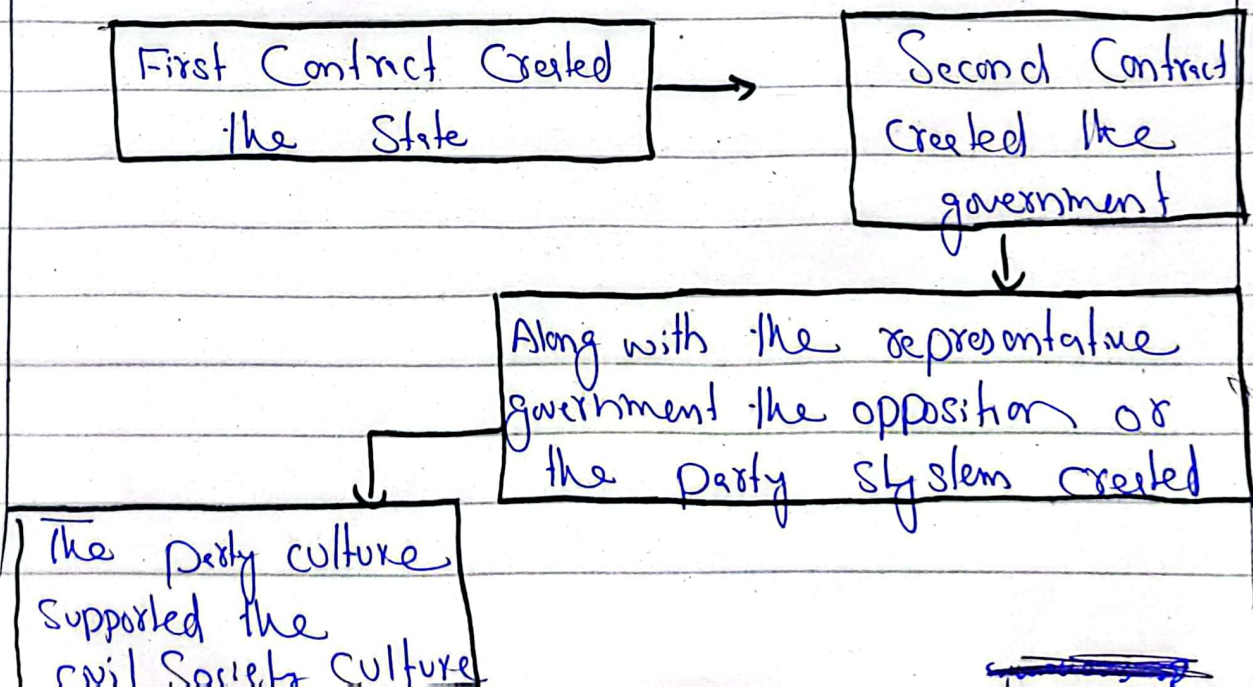 First Contract Created
the State
Second Contract
created the
government
Along with the representative
government the opposition or
the party system created
The party culture
supported the
civil Society culture